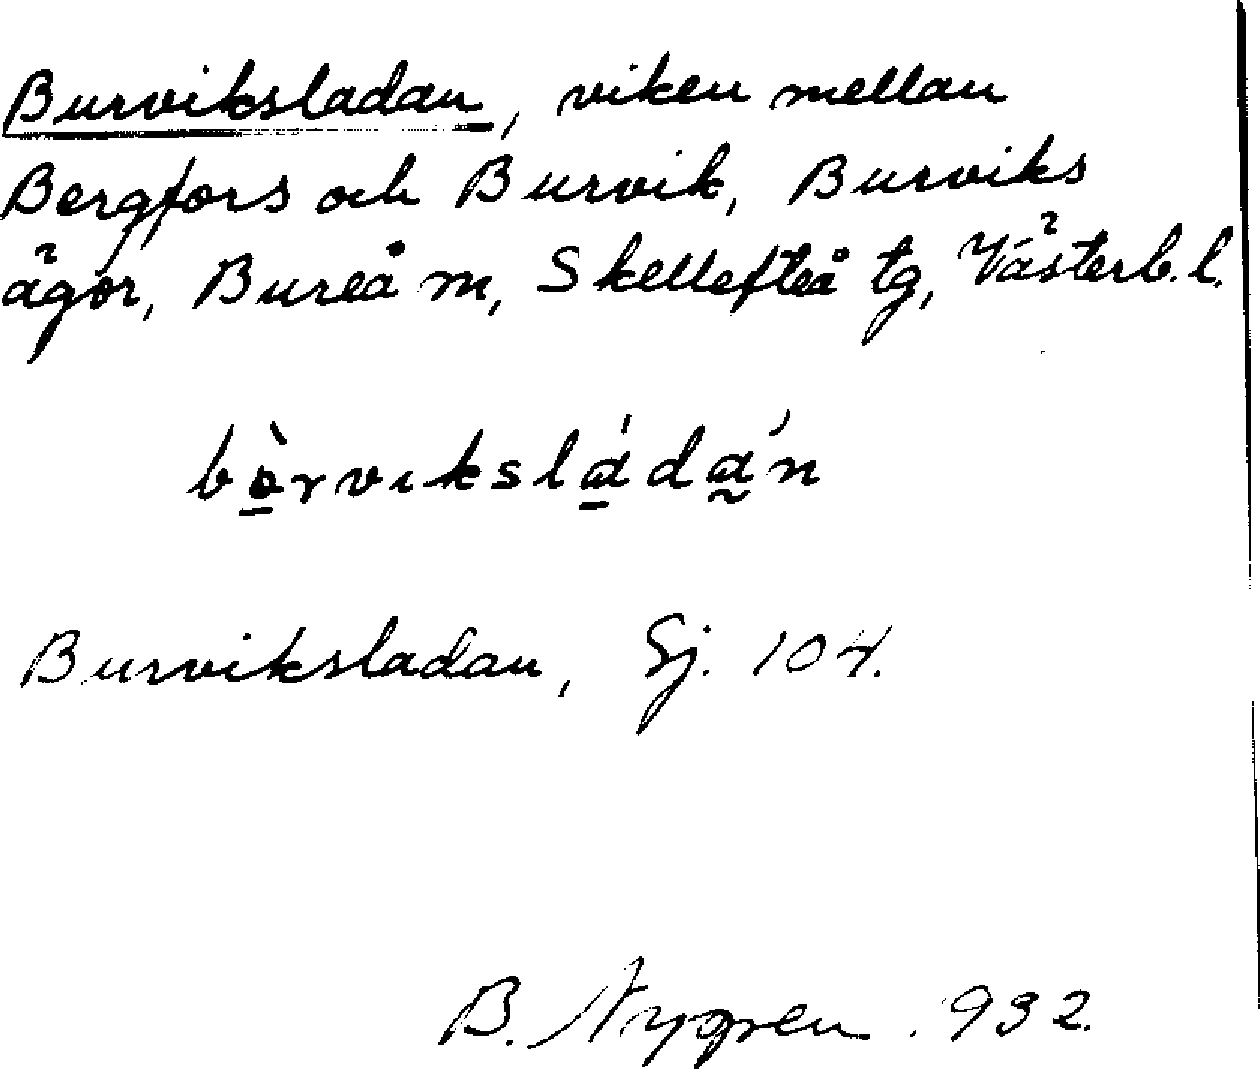 Burviksladan, viken mellan
Bergfors och Burvik, Burviks
ägor, Bureå m, Skellefteå tg, Västerb. l.
bòrvıksládán
Burviksladan, Sj. 104.
B. Nygren. 932.